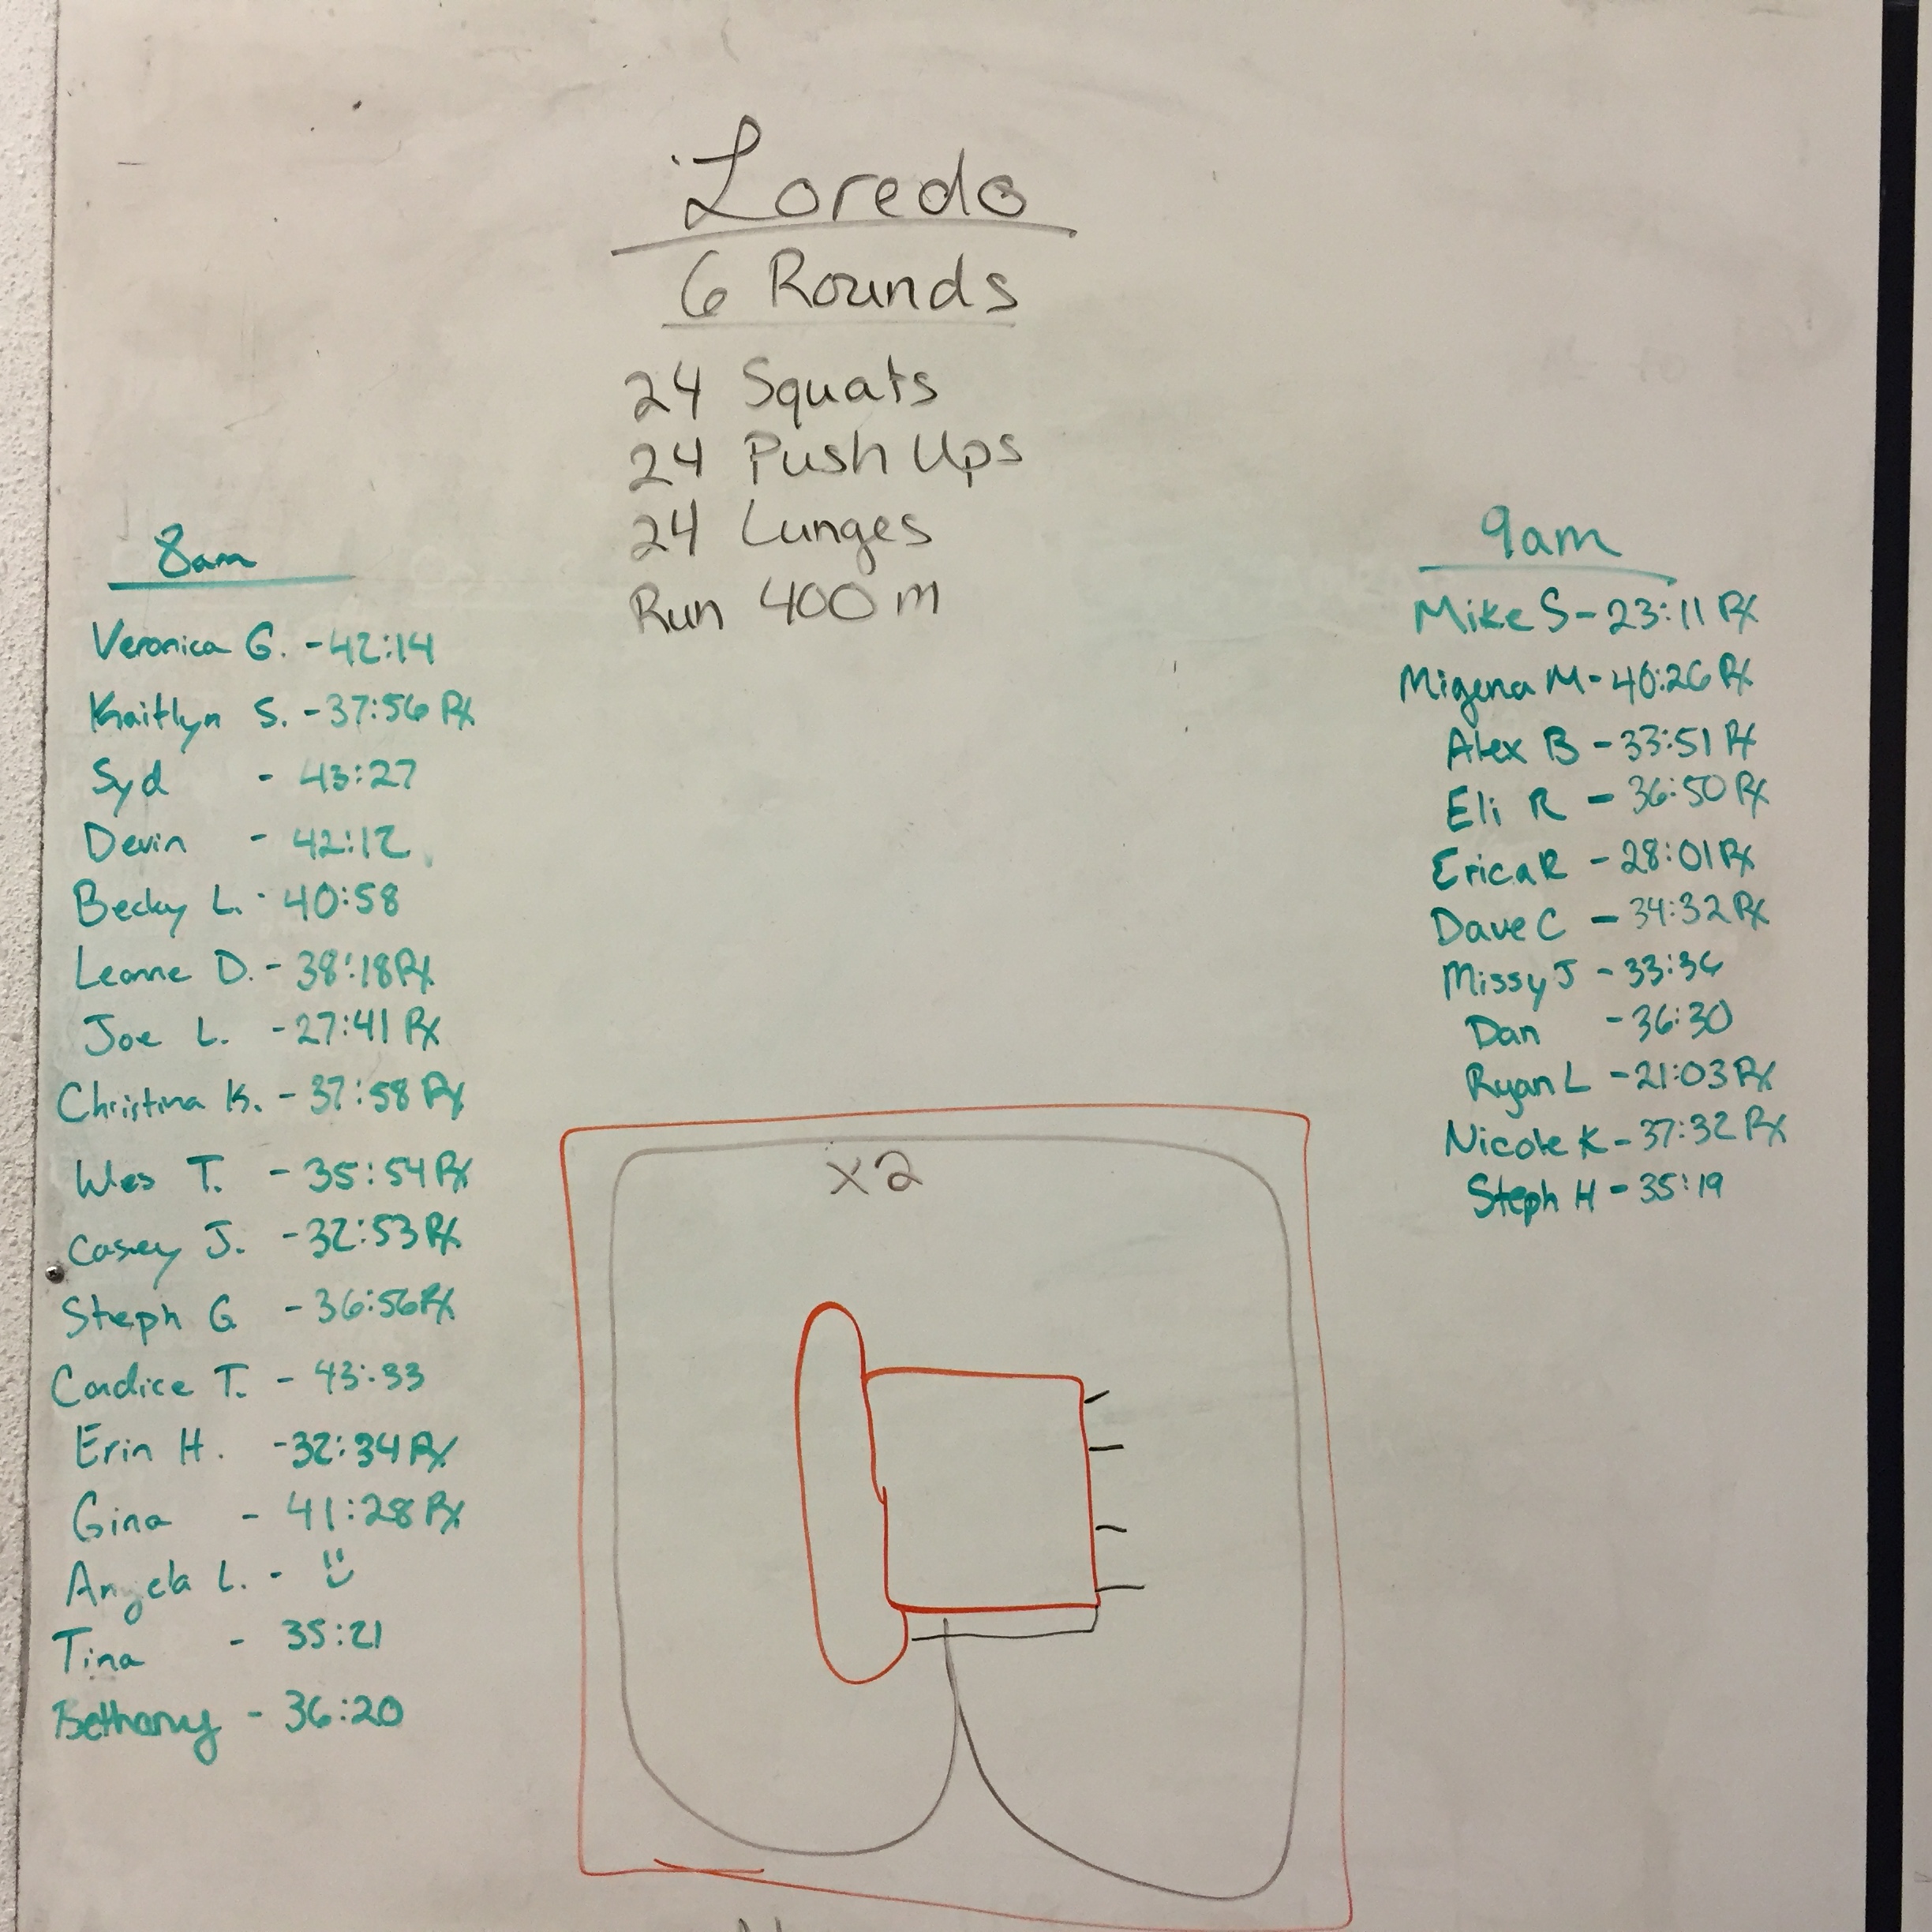 Loredo
6 Rounds
24 Squats
24 Push Ups
24 Lunges
Run 400m
8am
Veronica G. - 42:14
Kaitlyn S. - 37:56 Rx
Syd - 43:27
Devin - 42:12
Becky L. - 40:58
Leanne D. - 38:18 Rx
Joe L. - 27:41 Rx
Christina K. - 37:58 Rx
Wes T. - 35:54 Rx
Casey J. - 32:53 Rx
Steph G - 36:56 Rx
Candice T. - 43:33
Erin H. - 32:34 Rx
Gina - 41:28 Rx
Angela L. -
Tina - 35:21
Bethany - 36:20
9am
Mike S - 23:11 Rx
Migena M - 40:26 Rx
Alex B - 33:51 Rx
Eli R - 36:50 Rx
Erica R - 28:01 Rx
Dave C - 34:32 Rx
Missy J - 33:36
Dan - 36:30
Ryan L - 21:03 Rx
Nicole K - 37:32 Rx
Steph H - 35:19
x2